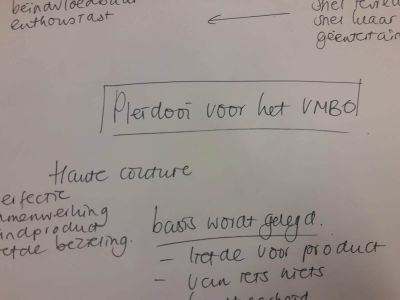 beïnvloedbaar
enthousiast
snel
snel klaar
geëntertain
Pleidooi voor het VMBO
Haute couture
erfectie
menwerking
indproduct
efde bezieling.
basis wordt gelegd.
- liefde voor product
- van iets niets